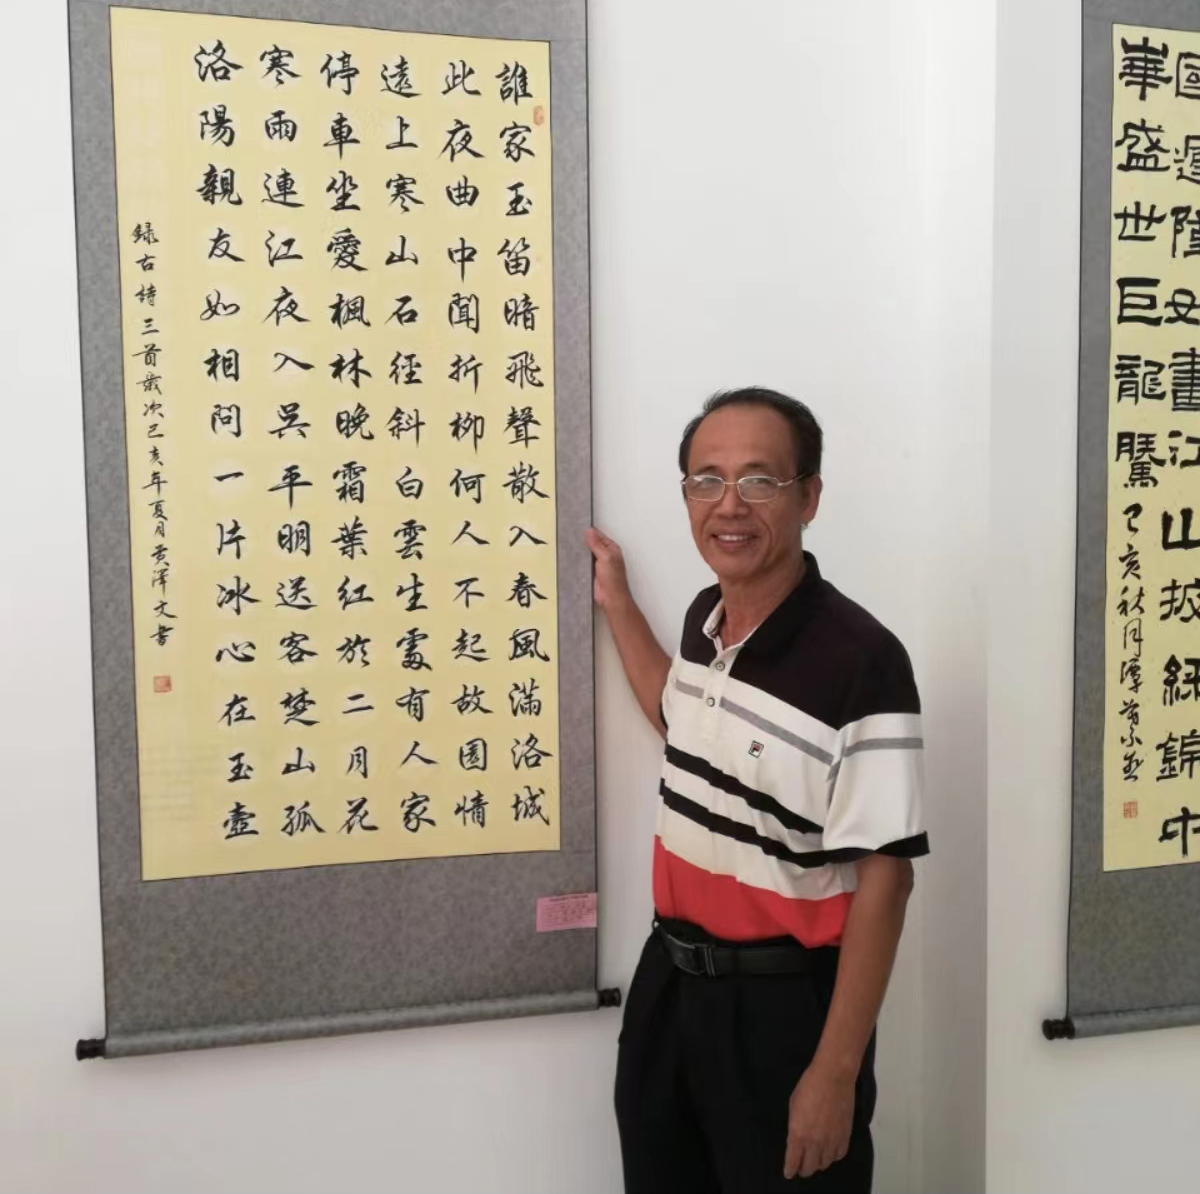 誰家玉笛暗飛聲散入春風滿洛城
此夜曲中聞折柳何人不起故園情
遠上寒山石徑斜白雲生處有人家
停車坐愛楓林晚霜葉紅於二月花
寒雨連江夜入吳平明送客楚山孤
洛陽親友如相問一片冰心在玉壺
録古詩三首歲次己亥年夏月黄澤文書
國運隆畫江山披綠錦中
華盛世巨龍騰己亥秋月